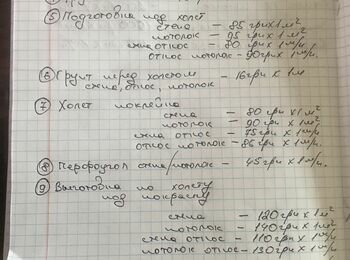 ⑤ Подготовка под холст
стена — 85 грн x 1 м²
потолок — 95 грн x 1 м²
стена откос — 80 грн x 1 м/п.
откос потолок — 90 грн x 1 м/п.
⑥ Грунт перед холстом — 16 грн x 1 м
стена, откос, потолок
⑦ Холст поклейка
стена — 80 грн x 1 м²
потолок — 90 грн x 1 м²
стена откос — 75 грн x 1 м/п.
потолок откос — 86 грн x 1 м/п.
⑧ Перфоугол стена/потолок — 45 грн x 1 м/п.
⑨ по холсту
под покраску
стена — 120 грн x 1 м²
потолок — 140 грн x 1 м²
стена откос — 110 грн x 1 м/п
потолок откос — 130 грн x 1 м/п.